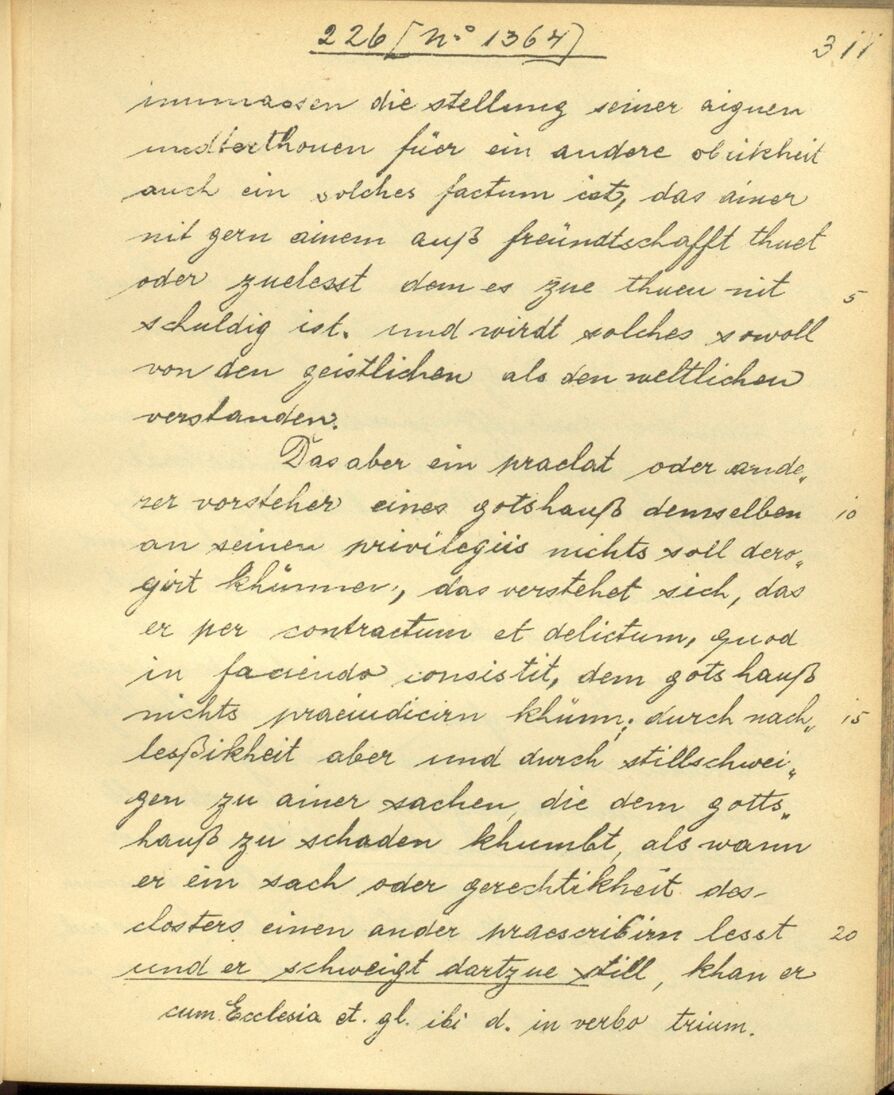 226 [N.º 1364]
311
immassen die stellung seiner aignen
underthonen füer ein andere obrikheit
auch ein solches factum ist, das ainer
nit gern ainem auß freündtschafft thuet
oder zuelesst dem es zue thuen nit 5
schuldig ist. und wirdt solches sowoll
von den geistlichen als den weltlichen
verstanden.
Das aber ein praelat oder ande„
rer vorsteher eines gotshauß demselben 10
an seinen privilegiis nichts soll dero„
girt khünnen, das verstehet sich, das
er per contractum et delictum, quod
in faciendo consistit, dem gotshauß
nichts praeiudicirn khünn; durch nach„ 15
leßikheit aber und durch stillschwei„
gen zu ainer sachen, die dem gotts„
hauß zu schaden khumbt, als wann
er ein sach oder gerechtikheit des-
closters einen ander praescribirn lesst 20
und er schweigt dartzue still, khan er
cum Ecclesia et. gl. ibi d. in verbo trium.